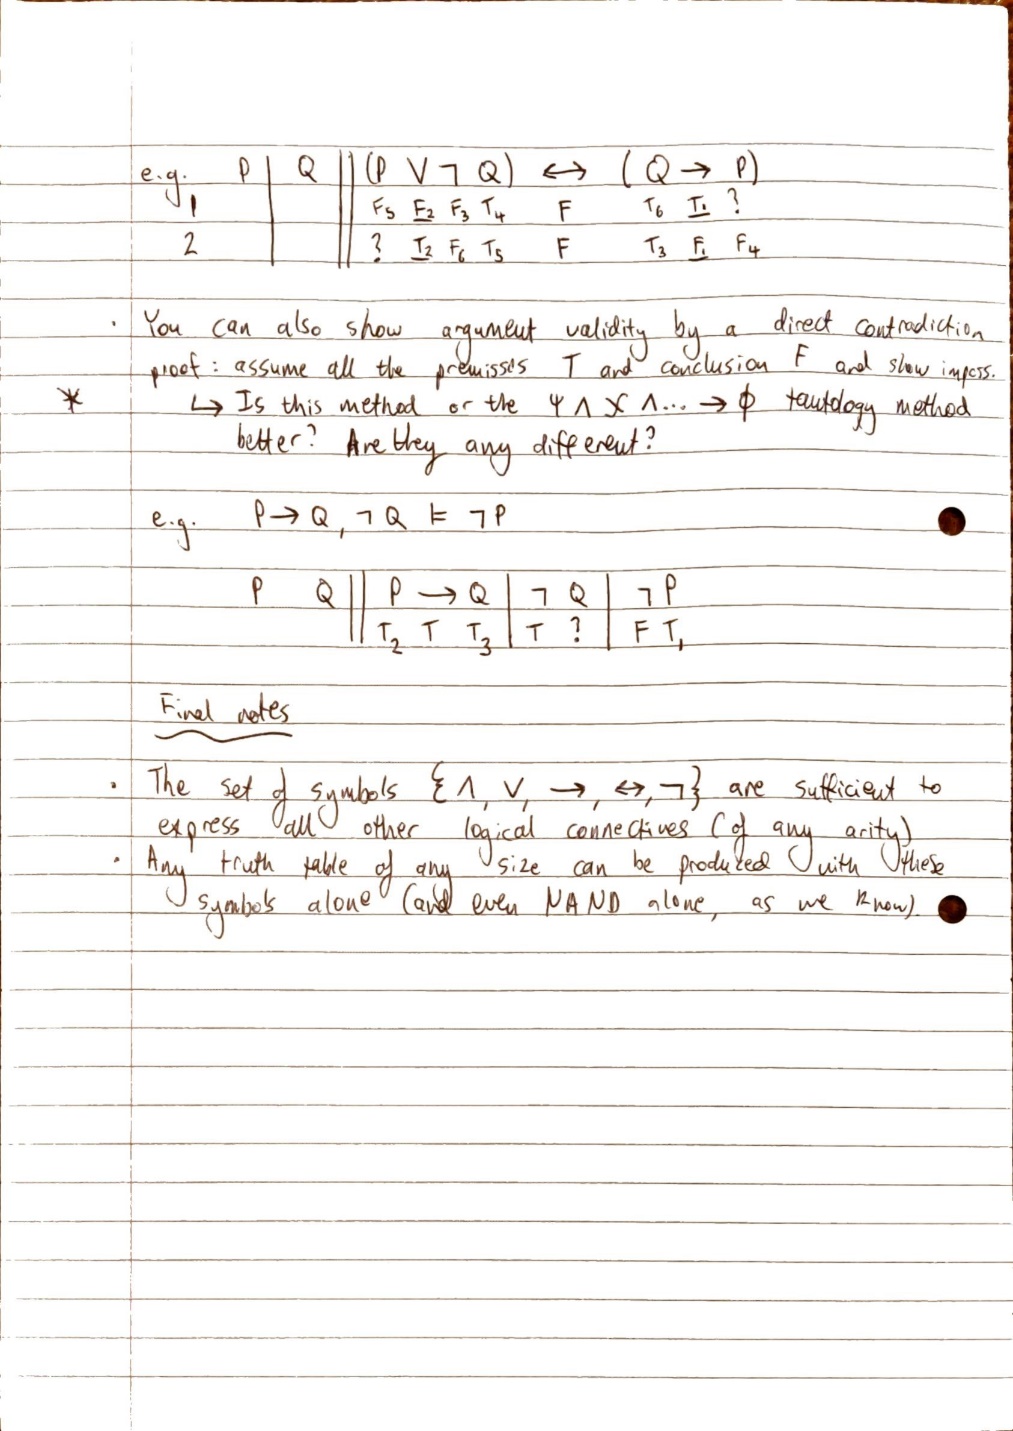 e.g. P | Q || (P ∨ ¬ Q) ↔ (Q → P)
1 F₅ F₂ F₃ T₄ F T₆ T₁ ?
2 ? T₂ F₆ T₅ F T₃ F₁ F₄
· You can also show argument validity by a direct contradiction
proof : assume all the premisses T and conclusion F and show imposs.
* ↳ Is this method or the Ψ ∧ χ ∧ ... → ϕ tautology method
better? Are they any different?
e.g. P → Q, ¬ Q ⊨ ¬ P
P Q || P → Q | ¬ Q | ¬ P
T₂ T T₃ | T ? | F T₁
Final notes
· The set of symbols {∧, ∨, →, ↔, ¬} are sufficient to
express all other logical connectives (of any arity)
· Any truth table of any size can be produced with these
symbols alone (and even NAND alone, as we know).